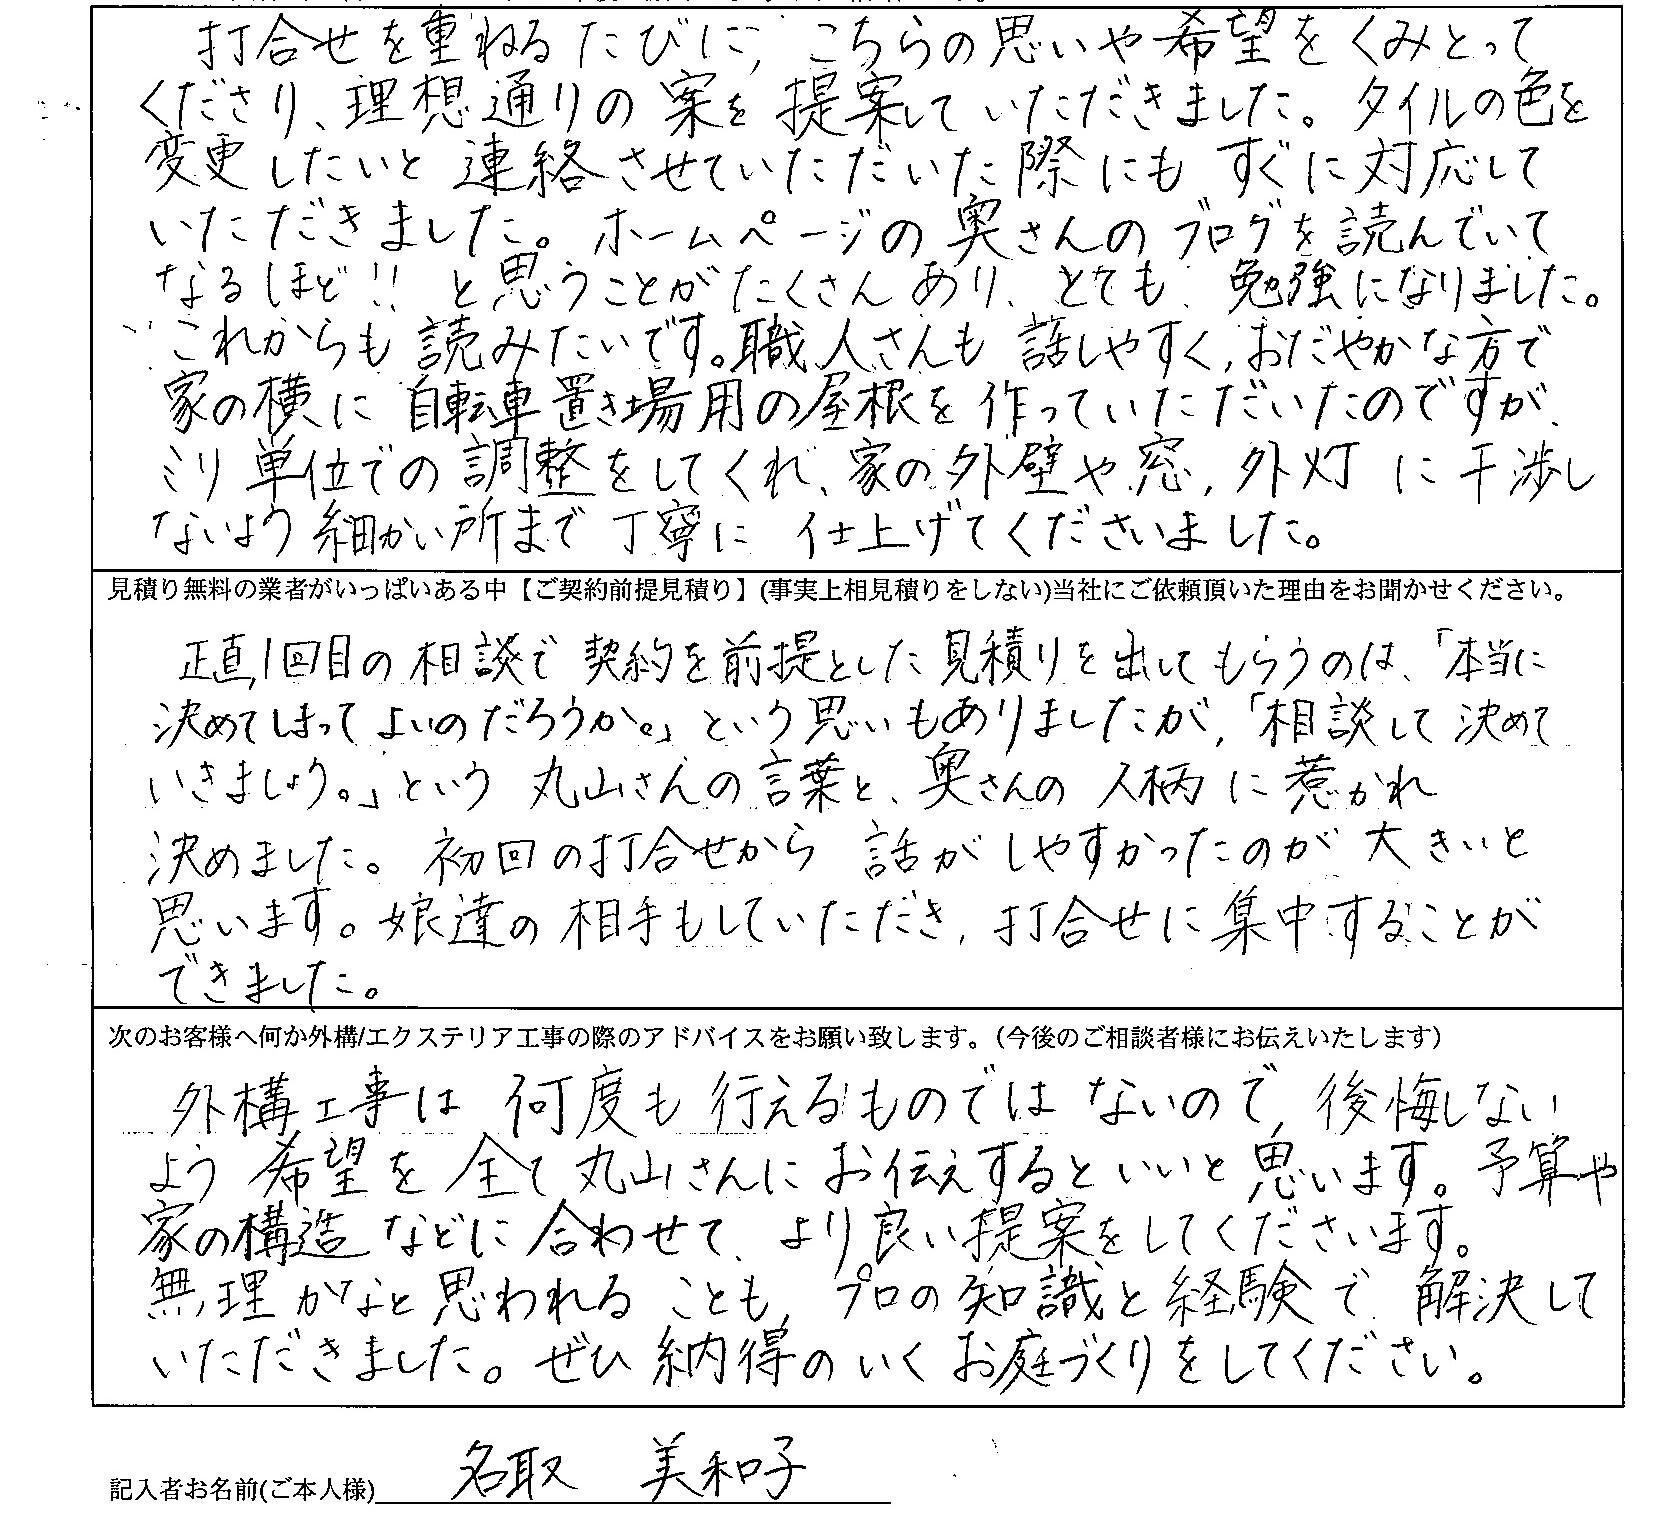 打合せを重ねるたびに、こちらの思いや希望をくみとって
くださり、理想通りの案を提案していただきました。タイルの色を
変更したいと連絡させていただいた際にもすぐに対応して
いただきました。ホームページの奥さんのブログを読んでいて
なるほど!!と思うことがたくさんあり、とても勉強になりました。
これからも読みたいです。職人さんも話しやすく、おだやかな方で
家の横に自転車置き場用の屋根を作っていただいたのですが、
ミリ単位での調整をしてくれ、家の外壁や窓、外灯に干渉し
ないよう細かい所まで丁寧に仕上げてくださいました。
見積り無料の業者がいっぱいある中【ご契約前提見積り】(事実上相見積りをしない)当社にご依頼頂いた理由をお聞かせください。
正直1回目の相談で契約を前提とした見積りを出してもらうのは、「本当に
決めてしまってよいのだろうか。」という思いもありましたが、「相談して決めて
いきましょう。」という丸山さんの言葉と、奥さんの人柄に惹かれ
決めました。初回の打合せから話がしやすかったのが大きいと
思います。娘達の相手もしていただき、打合せに集中することが
できました。
次のお客様へ何か外構/エクステリア工事の際のアドバイスをお願い致します。(今後のご相談者様にお伝えいたします)
外構工事は何度も行えるものではないので、後悔しない
よう希望を全て丸山さんにお伝えするといいと思います。予算や
家の構造などに合わせて、より良い提案をしてくださいます。
無理かなと思われることも、プロの知識と経験で解決して
いただきました。ぜひ納得のいくお庭づくりをしてください。
名取 美和子
記入者お名前(ご本人様)